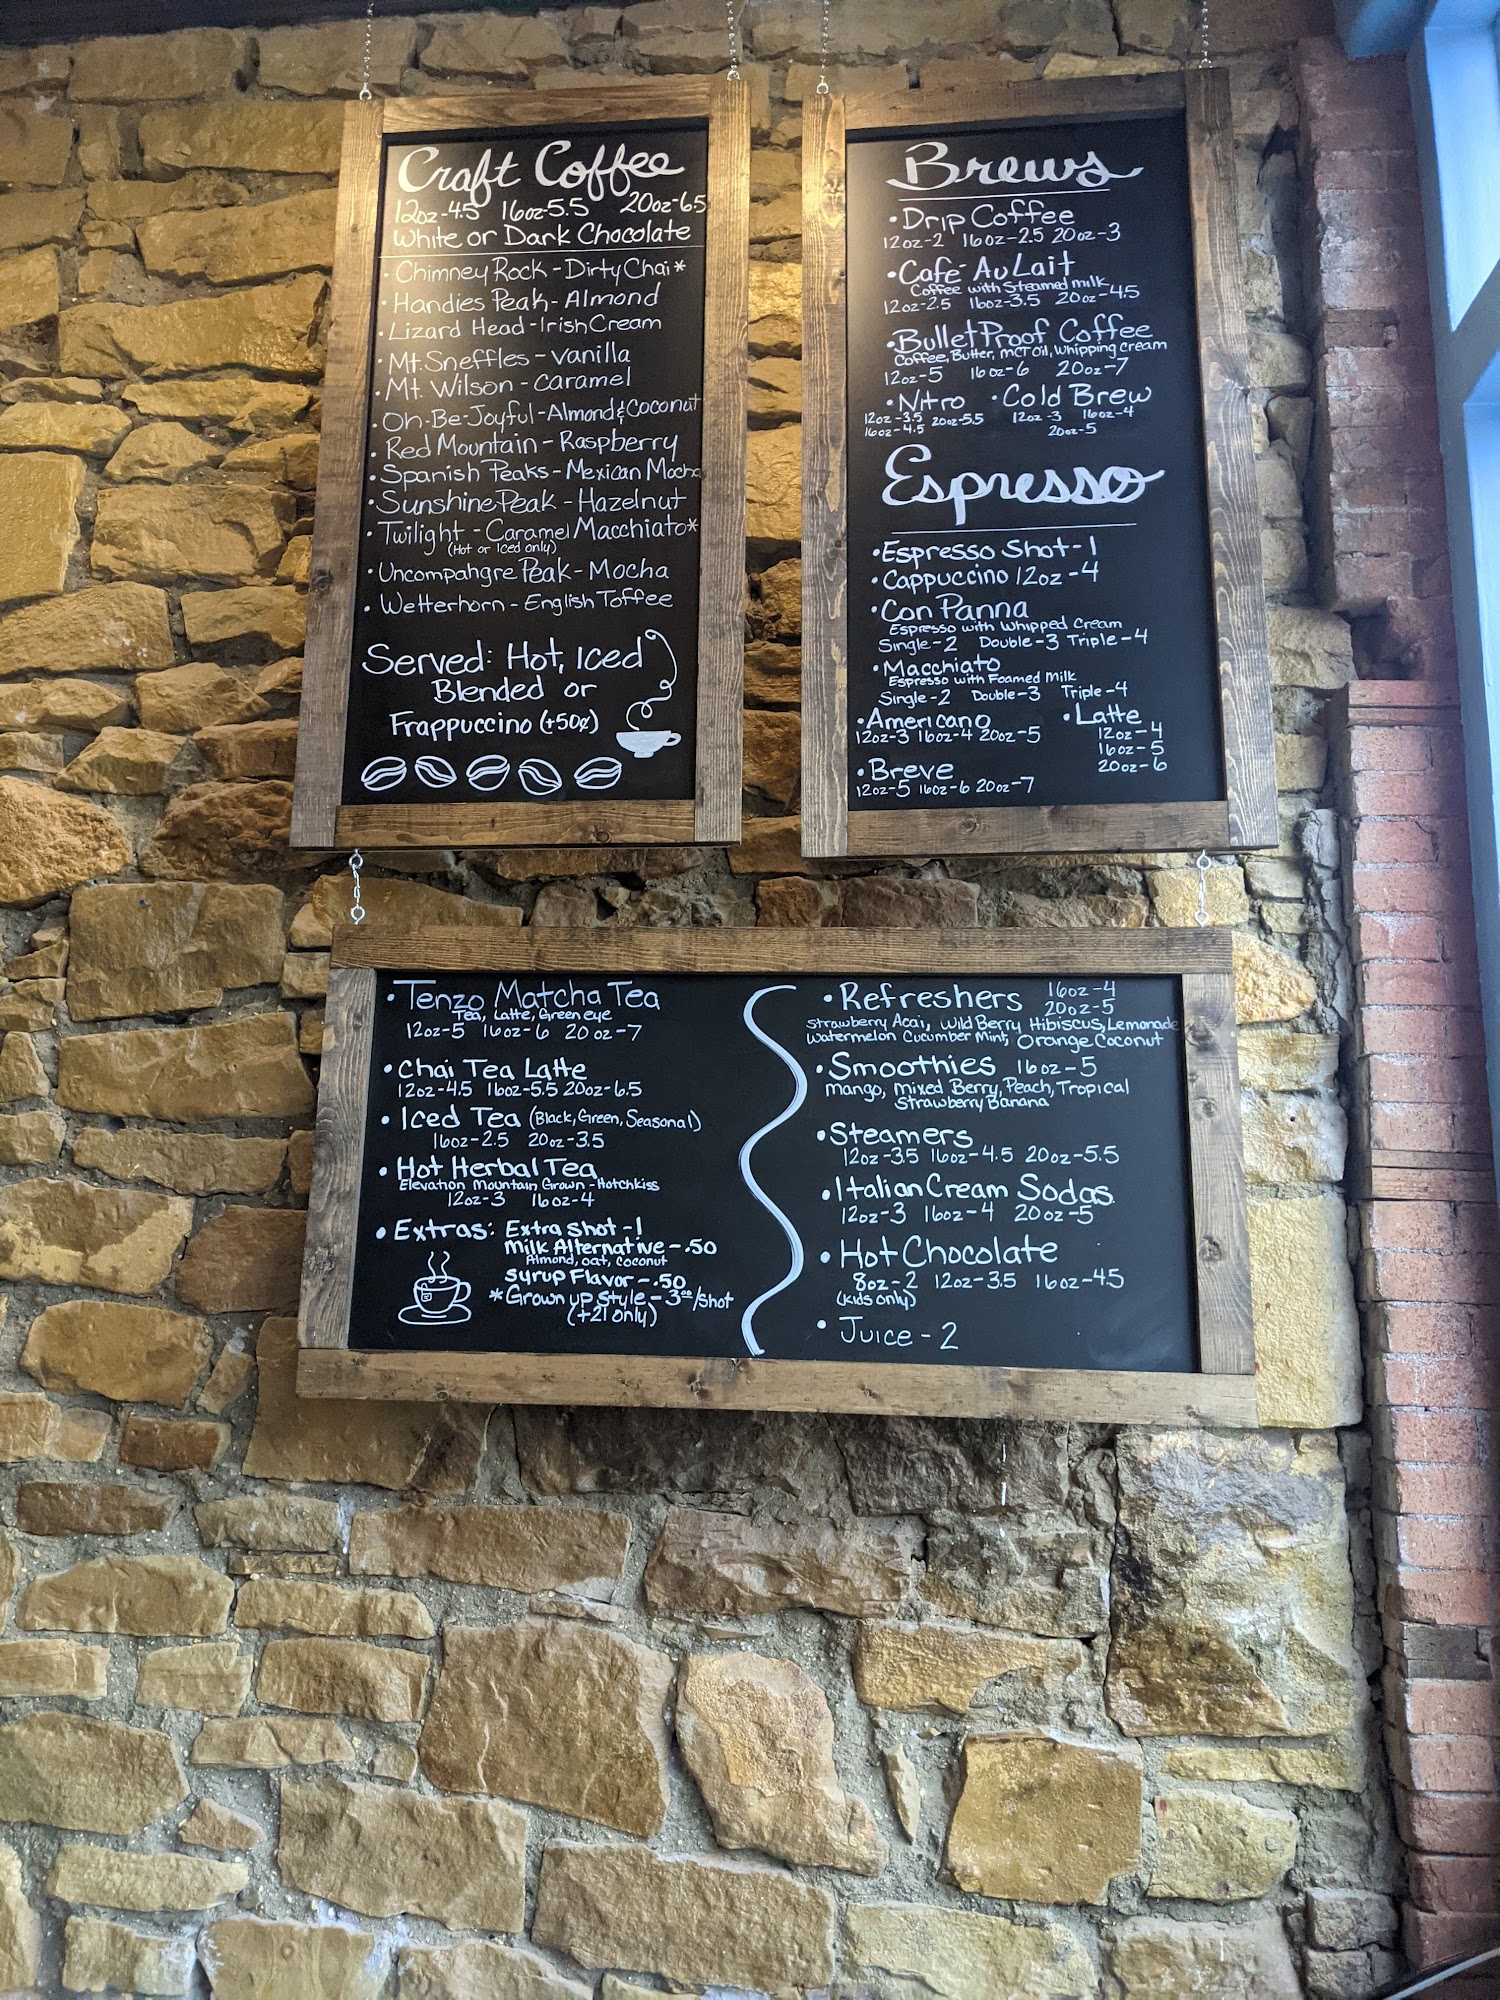 Craft Coffee
12oz-4.5 16oz-5.5 20oz-6.5
White or Dark Chocolate
• Chimney Rock - Dirty Chai*
• Handies Peak - Almond
• Lizard Head - Irish Cream
• Mt. Sneffles - Vanilla
• Mt. Wilson - Caramel
• Oh-Be-Joyful - Almond & Coconut
• Red Mountain - Raspberry
• Spanish Peaks - Mexican Mocha
• Sunshine Peak - Hazelnut
• Twilight - Caramel Macchiato*
(Hot or Iced only)
• Uncompahgre Peak - Mocha
• Wetterhorn - English Toffee
Served: Hot, Iced
Blended or
Frappuccino (+50¢)
Brews
• Drip Coffee
12oz-2 16oz-2.5 20oz-3
• Café Au Lait
Coffee with Steamed milk
12oz-2.5 16oz-3.5 20oz-4.5
• Bullet Proof Coffee
Coffee, Butter, MCT Oil, Whipping Cream
12oz-5 16oz-6 20oz-7
• Nitro • Cold Brew
12oz-3.5 20oz-5.5 12oz-3 16oz-4
16oz-4.5 20oz-5
Espresso
• Espresso Shot - 1
• Cappuccino 12oz - 4
• Con Panna
Espresso with Whipped Cream
Single-2 Double-3 Triple-4
• Macchiato
Espresso with Foamed Milk
Single-2 Double-3 Triple-4
• Americano
12oz-3 16oz-4 20oz-5
• Latte
12oz-4
16oz-5
20oz-6
• Breve
12oz-5 16oz-6 20oz-7
• Tenzo Matcha Tea
Tea, Latte, Green eye
12oz-5 16oz-6 20oz-7
• Chai Tea Latte
12oz-4.5 16oz-5.5 20oz-6.5
• Iced Tea (Black, Green, Seasonal)
16oz-2.5 20oz-3.5
• Hot Herbal Tea
Elevation Mountain Grown - Hotchkiss
12oz-3 16oz-4
• Extras: Extra Shot - 1
Milk Alternative - .50
Almond, oat, coconut
Syrup Flavor - .50
* Grown up Style - 3.00/shot
(+21 only)
• Refreshers 16oz-4
20oz-5
Strawberry Acai, Wild Berry Hibiscus, Lemonade
Watermelon Cucumber Mint, Orange Coconut
• Smoothies 16oz-5
Mango, Mixed Berry, Peach, Tropical
Strawberry Banana
• Steamers
12oz-3.5 16oz-4.5 20oz-5.5
• Italian Cream Sodas
12oz-3 16oz-4 20oz-5
• Hot Chocolate
8oz-2 12oz-3.5 16oz-4.5
(Kids only)
• Juice - 2